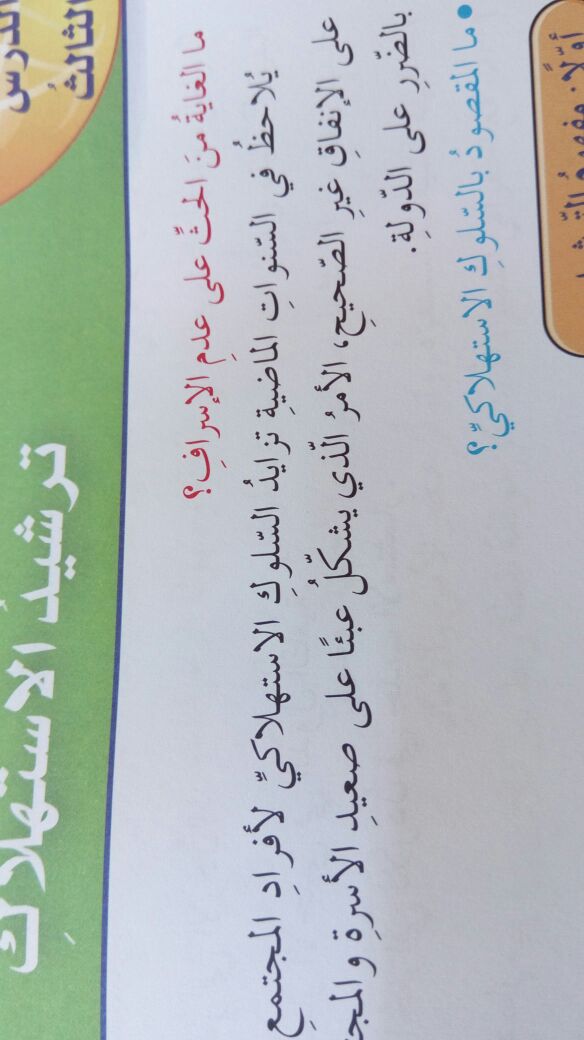 الدرس
الثالثُ
ترشيدُ الاستهلاكِ
ما الغايةُ منَ الحثِّ على عدمِ الإسرافِ؟
يُلاحظُ في السّنواتِ الماضيةِ تزايدُ السّلوكِ الاستهلاكيِّ لأفرادِ المجتمعِ
على الإنفاقِ غيرِ الصّحيحِ، الأمرُ الّذي يشكّلُ عبئًا على صعيدِ الأسرةِ
بالضّررِ على الدّولةِ.
• ما المقصودُ بالسّلوكِ الاستهلاكيِّ؟
أوّلًا: